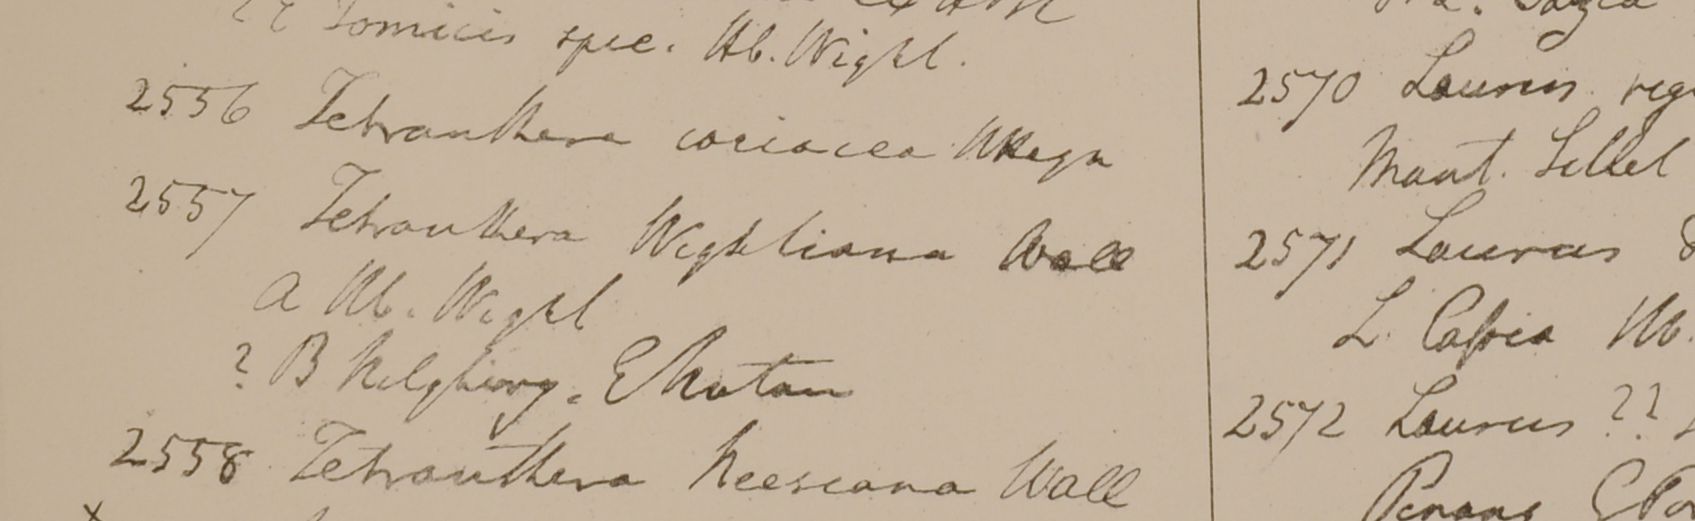 Tomicis spec. Hb. Wight.
2556 Tetranthera coriacea
2557 Tetranthera Wightiana Wall
a Hb. Wight
? B Nilghiery. E Noton
2558 Tetranthera Neesiana Wall
x
2570 Laurus
Mant. Sillet
2571 Laurus
L. Cassia Hb.
2572 Laurus ??
Penang